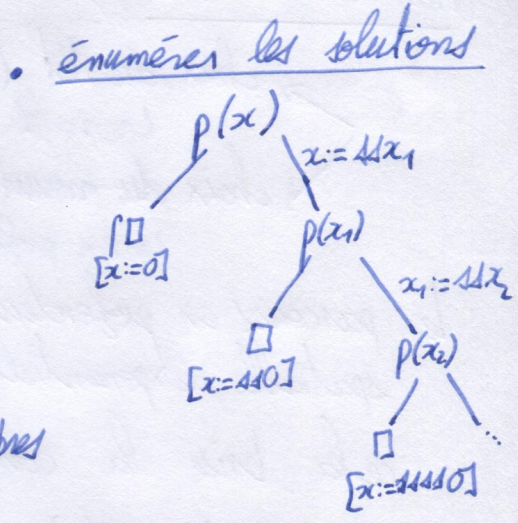 • énumérer les solutions
p(x)
x:=ssx₁
□
[x:=0]
p(x₁)
x₁:=ssx₂
□
[x:=ss0]
p(x₂)
bres
□
...
[x:=ssss0]